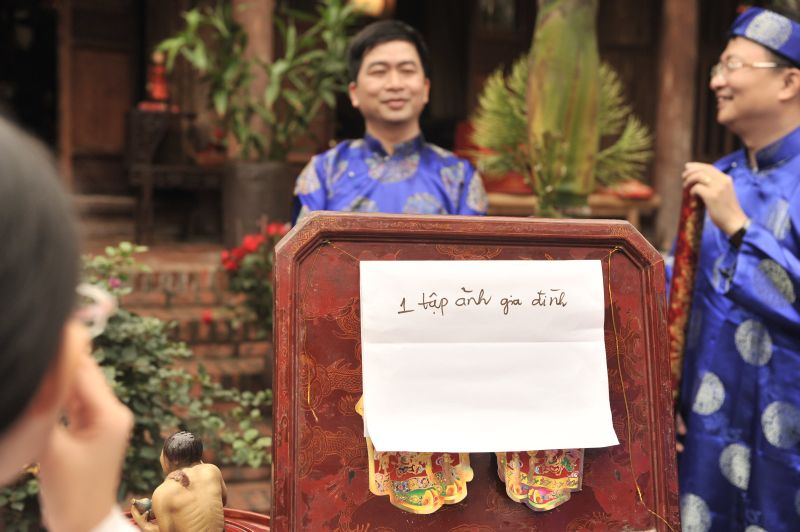 1 tập ảnh gia đình